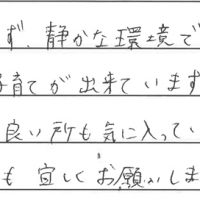 ず、静かな環境で
子育てが出来ています
良い所も気に入ってい
も宜しくお願いしま